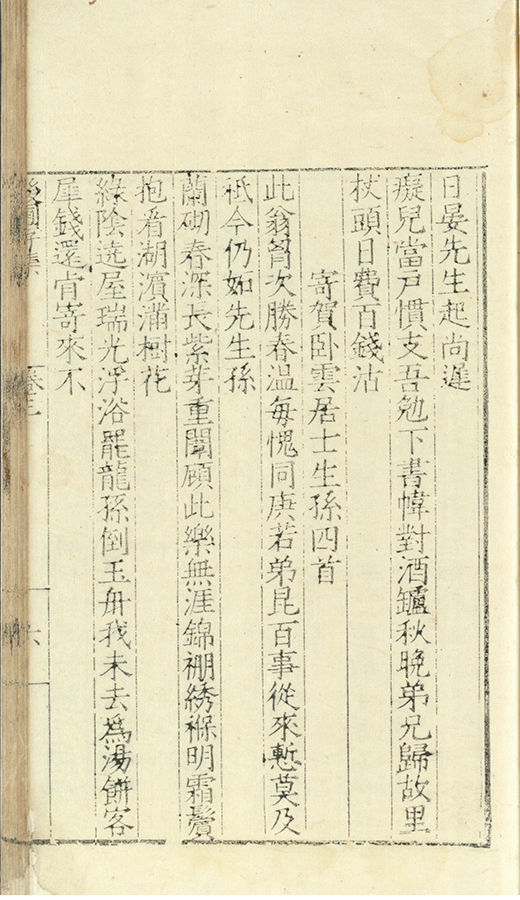 日晏先生起尚遲
癡兒當戶慣支吾勉下書幃對酒鑪秋晚弟兄歸故里
杖頭日費百錢沽
寄賀卧雲居士生孫四首
此翁胷次勝春温每愧同庚若弟昆百事從來慙莫及
祇今仍妬先生孫
蘭砌春深長紫芽重闈顧此樂無涯錦襁綉褓明霜鬢
抱看湖濱滿樹花
綠陰遶屋瑞光浮浴罷龍孫倒玉舟我未去爲湯餅客
犀錢還肯寄來不
卷三
六